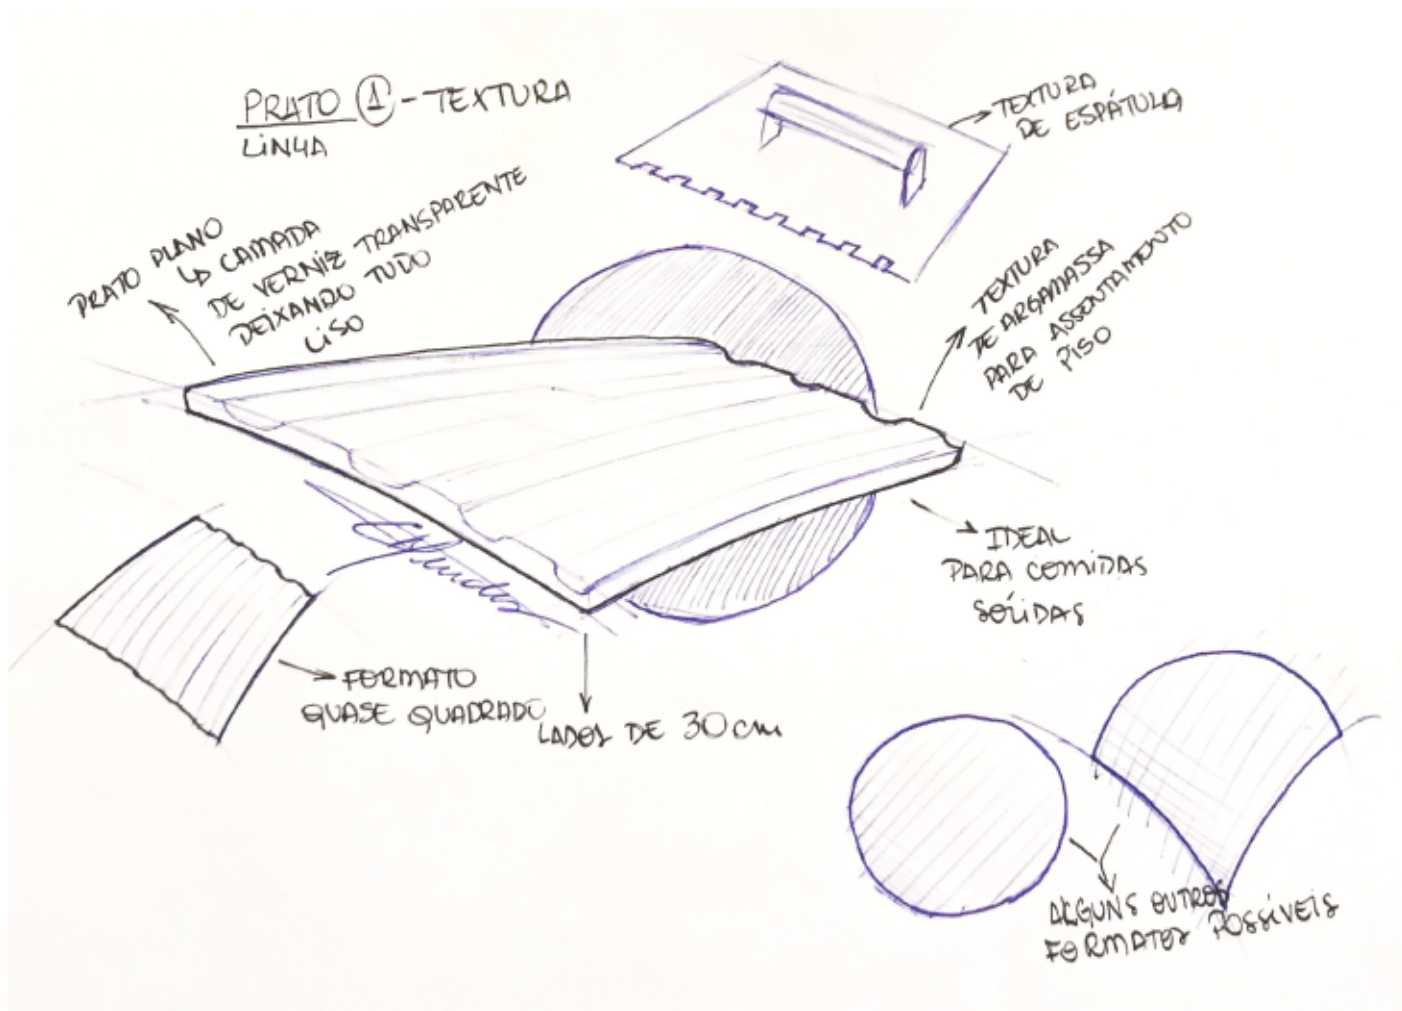 PRATO 1 - TEXTURA
LINHA
TEXTURA
DE ESPÁTULA
PRATO PLANO
↳ CAMADA
DE VERNIZ TRANSPARENTE
DEIXANDO TUDO
LISO
TEXTURA
DE ARGAMASSA
PARA ASSENTAMENTO
DE PISO
IDEAL
PARA COMIDAS
SÓLIDAS
FORMATO
QUASE QUADRADO
LADOS DE 30cm
ALGUNS OUTROS
FORMATOS POSSÍVEIS